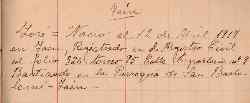 Jaén
José = Nació el 12 de Abril 1918
en Jaén, Registrado en el Registro Civil
al folio 326, tomo 75 Calle nº 8
Bautizado en la Parroquia de San Barto-
lomé - Jaén -